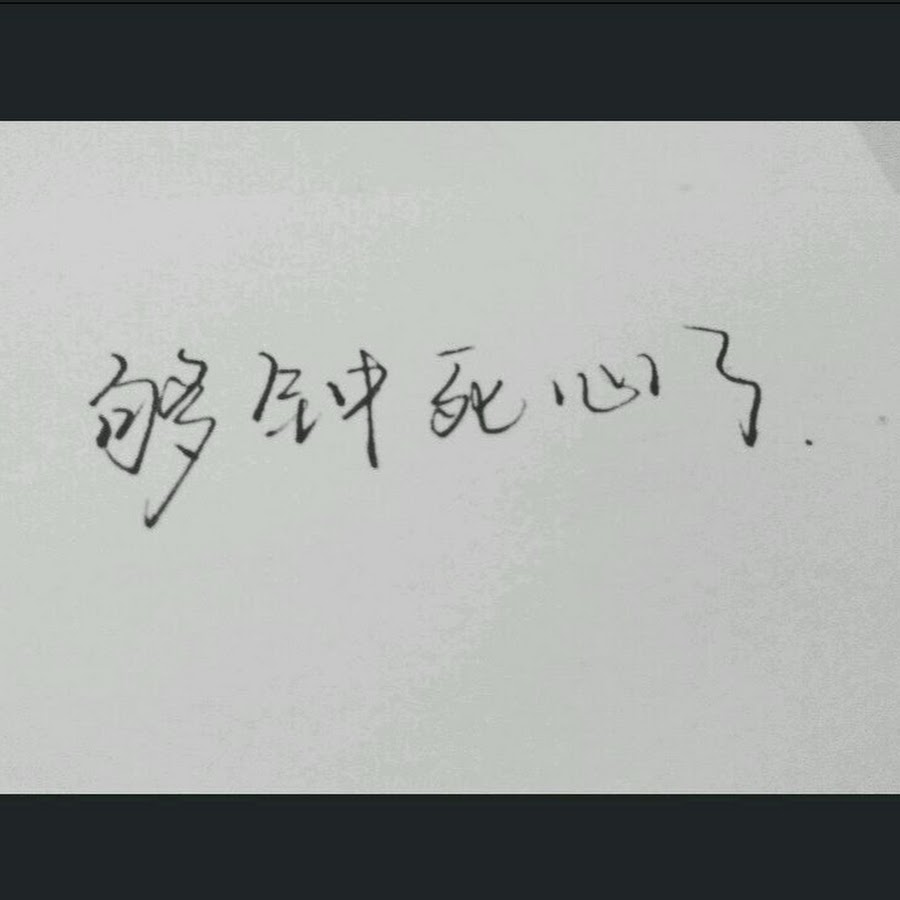 够钟死心了.